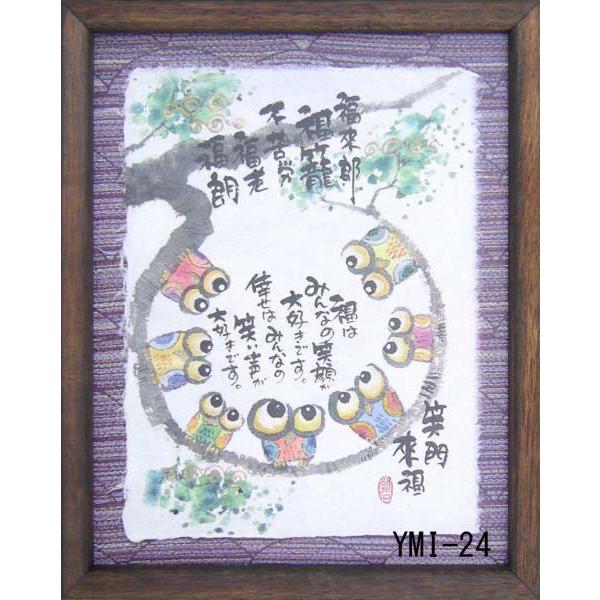 福来郎
福籠
不苦労
福老
福朗
福は
みんなの笑顔が
大好きです。
倖せはみんなの
笑い声が
大好きです。
笑門
来福
YMI-24